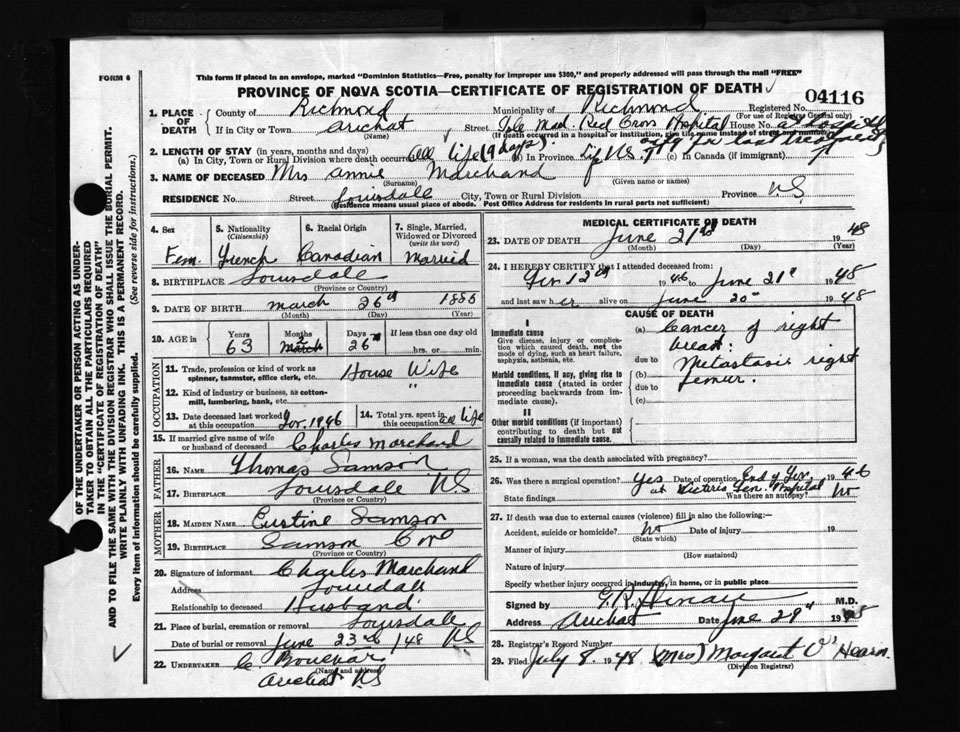 FORM 6
This form if placed in an envelope, marked "Dominion Statistics—Free, penalty for improper use $300," and properly addressed will pass through the mail "FREE"
PROVINCE OF NOVA SCOTIA—CERTIFICATE OF REGISTRATION OF DEATH
04116
1. PLACE OF DEATH
County of Richmond Municipality of Richmond Registered No.
(For use of Registrar General only)
If in City or Town Arichat Street Isle Mad. Red Cross Hospital House No. at hospital
(Name) (If death occurred in a hospital or institution, give the name instead of street and number)
only for last
2. LENGTH OF STAY (in years, months and days)
(a) In City, Town or Rural Division where death occurred all life (9 days) (b) In Province life N.S. (c) In Canada (if immigrant)
3. NAME OF DECEASED Mrs Annie Marchand
(Surname) (Given name or names)
RESIDENCE No. Street Louisdale City, Town or Rural Division Province N.S
(Residence means usual place of abode. Post Office Address for residents in rural parts not sufficient)
4. Sex 5. Nationality (Citizenship) 6. Racial Origin 7. Single, Married, Widowed or Divorced (write the word)
Fem. French Canadian Married
8. BIRTHPLACE Louisdale
(Province or Country)
9. DATE OF BIRTH March 26th 1885
(Month) (Day) (Year)
10. AGE in Years Months Days If less than one day old
63 2 March 26th hrs. or min.
OCCUPATION
11. Trade, profession or kind of work as spinner, teamster, office clerk, etc. House Wife
12. Kind of industry or business, as cotton-mill, lumbering, bank, etc. "
13. Date deceased last worked at this occupation 1946 14. Total yrs. spent in this occupation all life
15. If married give name of wife or husband of deceased Charles Marchand
FATHER
16. NAME Thomas Samson
17. BIRTHPLACE Louisdale N.S
(Province or Country)
MOTHER
18. MAIDEN NAME Eustine Samson
19. BIRTHPLACE Samson Cove
(Province or Country)
20. Signature of informant Charles Marchand
Address Louisdale
Relationship to deceased Husband
21. Place of burial, cremation or removal Louisdale
Date of burial or removal June 23rd /48 N.S
22. UNDERTAKER
(Name and address)
Arichat N.S
MEDICAL CERTIFICATE OF DEATH
23. DATE OF DEATH June 21st 1948
(Month) (Day) (Year)
24. I HEREBY CERTIFY that I attended deceased from:
12th 1946 to June 21st 1948
and last saw her alive on June 20th 1948
CAUSE OF DEATH
I
Immediate cause
Give disease, injury or complication which caused death, not the mode of dying, such as heart failure, asphyxia, asthenia, etc.
(a) Cancer of right breast.
due to
Morbid conditions, if any, giving rise to immediate cause (stated in order proceeding backwards from immediate cause).
(b) Metastasis right femur.
due to
(c)
II
Other morbid conditions (if important) contributing to death but not causally related to immediate cause.
25. If a woman, was the death associated with pregnancy?
26. Was there a surgical operation? Yes Date of operation End of 1946
State findings at Victoria Gen. Hospital Was there an autopsy? No
27. If death was due to external causes (violence) fill in also the following:—
Accident, suicide or homicide? No Date of injury 19
(State which)
Manner of injury
(How sustained)
Nature of injury
Specify whether injury occurred in industry, in home, or in public place
Signed by M.D.
Address Arichat Date June 29th 1948
28. Registrar's Record Number
29. Filed July 8. 1948 (Mrs) Margaret O'Hearn.
(Division Registrar)
OF THE UNDERTAKER OR PERSON ACTING AS UNDERTAKER TO OBTAIN ALL THE PARTICULARS REQUIRED IN THE "CERTIFICATE OF REGISTRATION OF DEATH"
AND TO FILE THE SAME WITH THE DIVISION REGISTRAR WHO SHALL ISSUE THE BURIAL PERMIT.
WRITE PLAINLY WITH UNFADING INK. THIS IS A PERMANENT RECORD.
Every item of information should be carefully supplied. (See reverse side for instructions.)